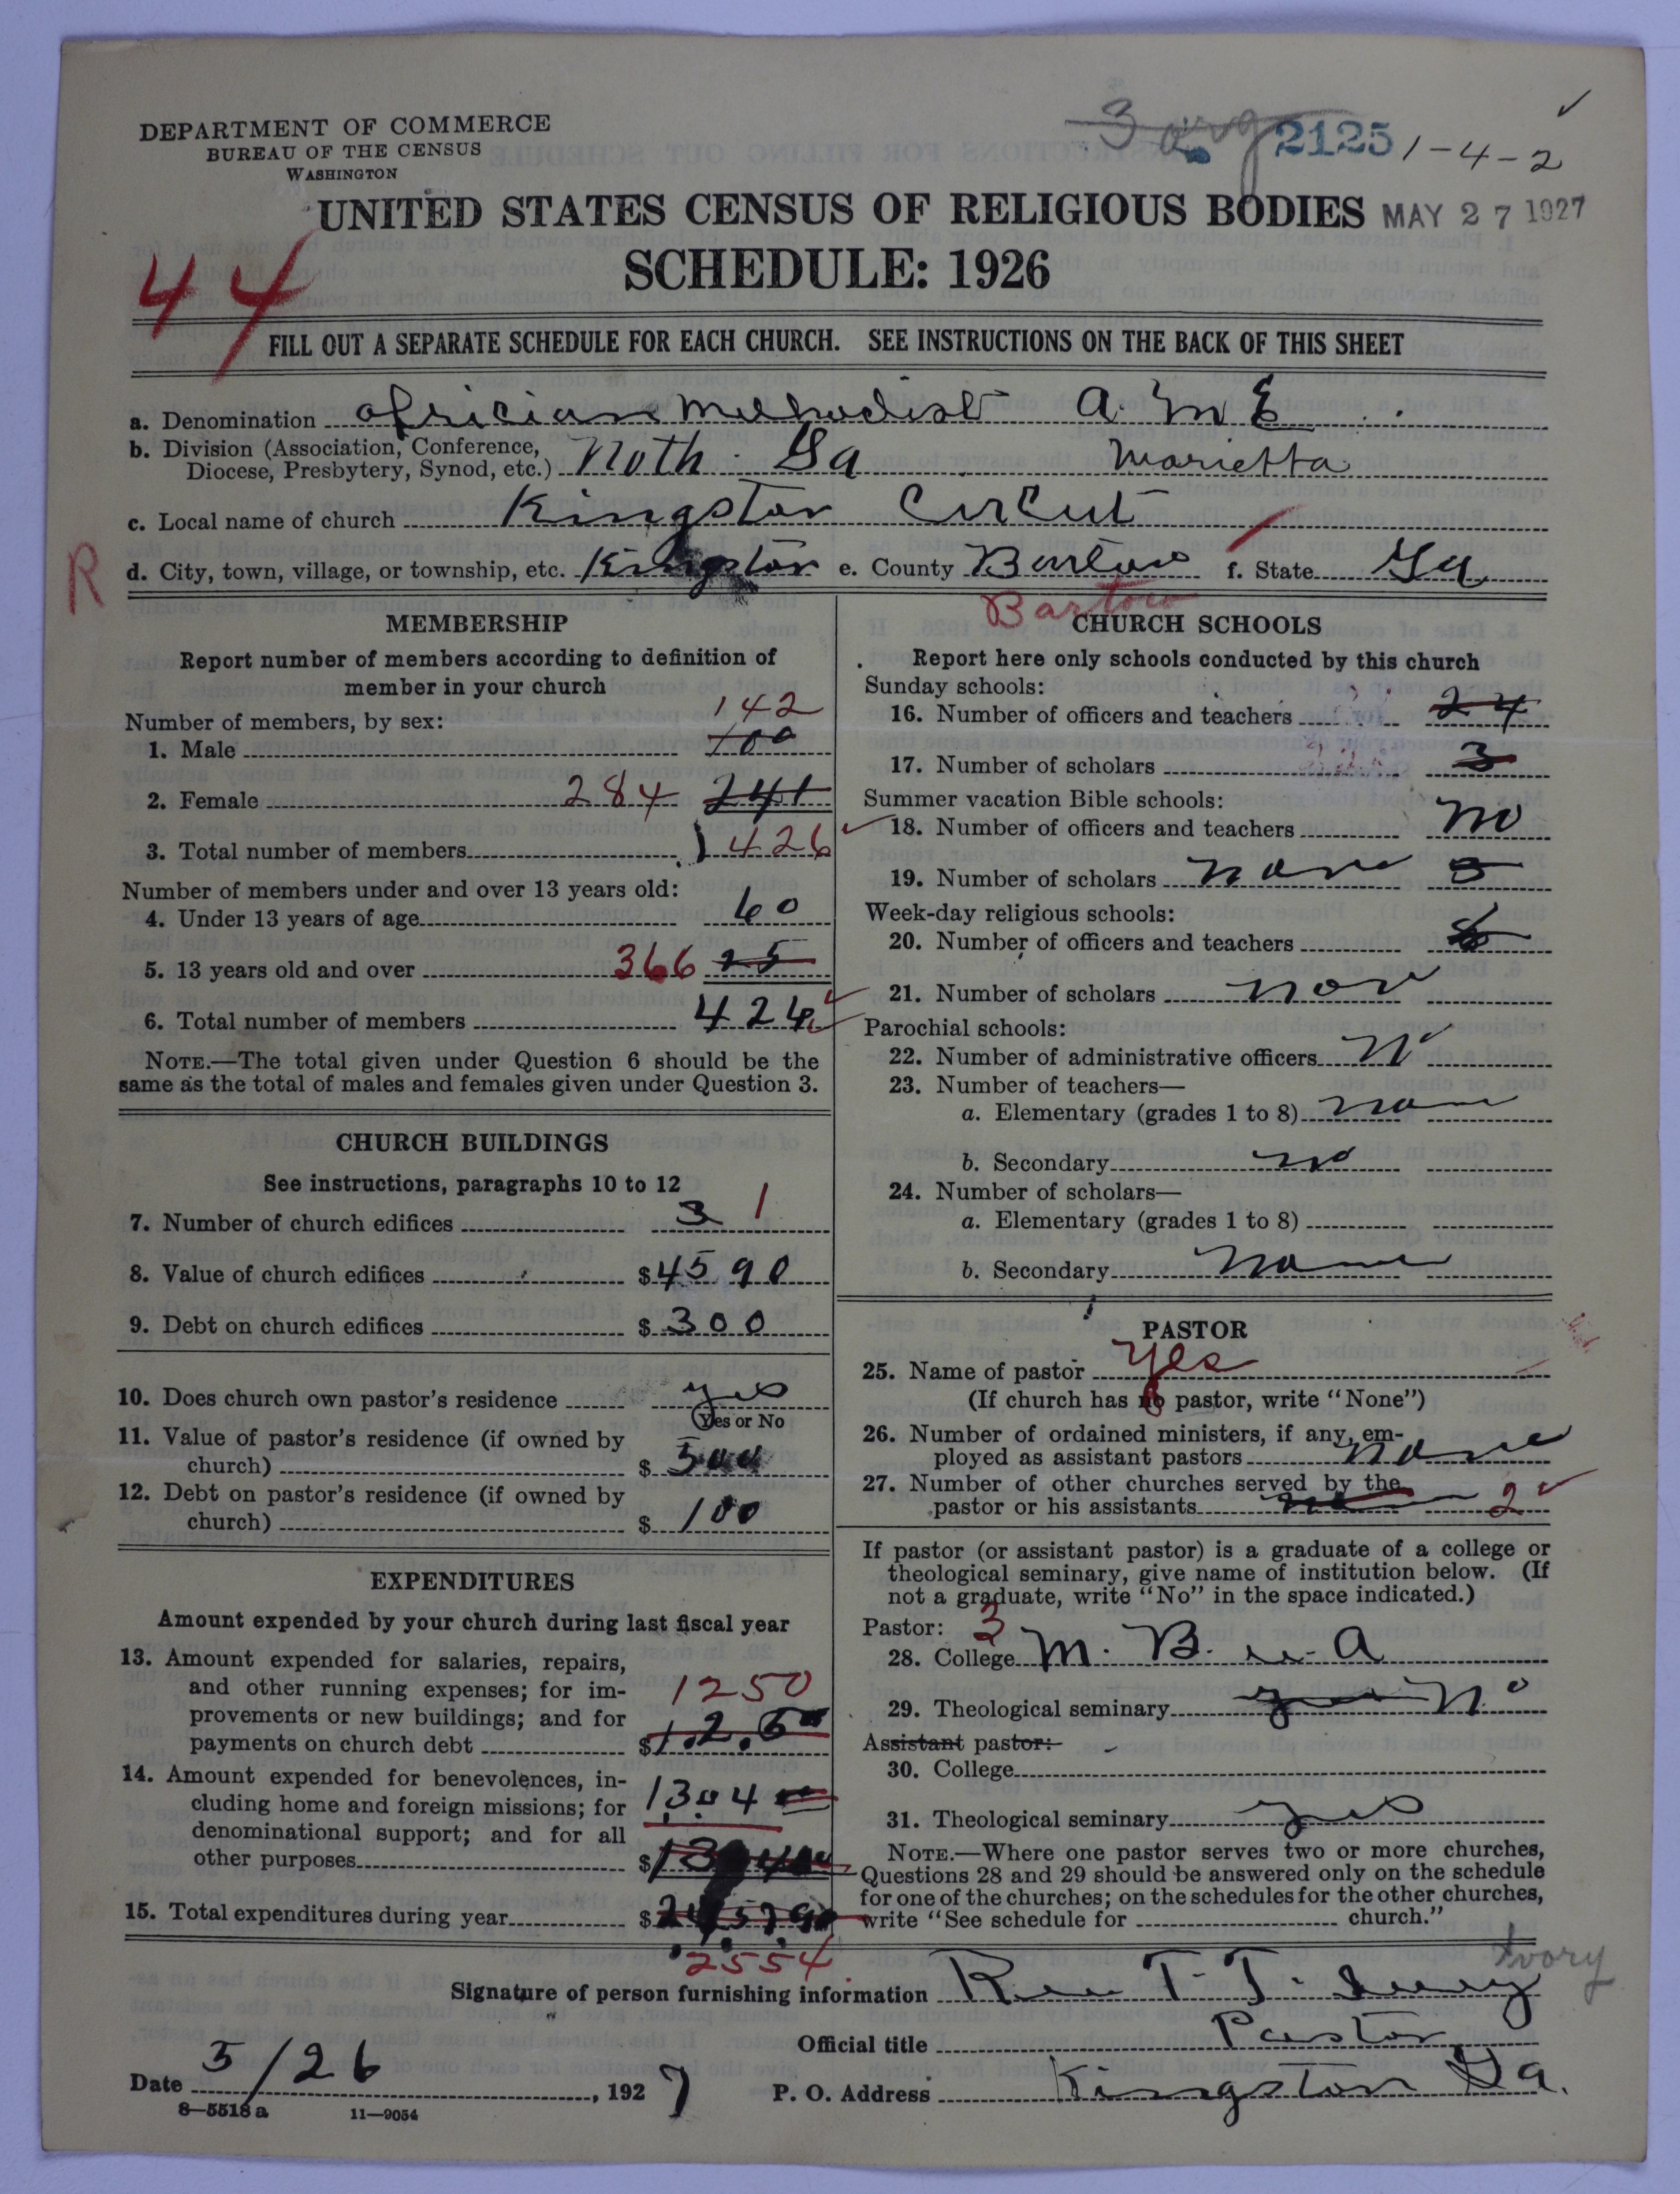 DEPARTMENT OF COMMERCE
BUREAU OF THE CENSUS
WASHINGTON
3 org 2125 1-4-2
UNITED STATES CENSUS OF RELIGIOUS BODIES MAY 27 1927
SCHEDULE: 1926
44
FILL OUT A SEPARATE SCHEDULE FOR EACH CHURCH. SEE INSTRUCTIONS ON THE BACK OF THIS SHEET
a. Denomination africian Methodist A. M E
b. Division (Association, Conference,
Diocese, Presbytery, Synod, etc.) Noth Ga Marietta
c. Local name of church Kingston Circut
R
d. City, town, village, or township, etc. Kingston e. County Bartow f. State Ga
Bartow
MEMBERSHIP
Report number of members according to definition of
member in your church
Number of members, by sex: 142
1. Male 100
2. Female 284 241
3. Total number of members 426
Number of members under and over 13 years old:
4. Under 13 years of age 60
5. 13 years old and over 366 25
6. Total number of members 426
NOTE.—The total given under Question 6 should be the
same as the total of males and females given under Question 3.
CHURCH BUILDINGS
See instructions, paragraphs 10 to 12
7. Number of church edifices 3 1
8. Value of church edifices $4590
9. Debt on church edifices $300
10. Does church own pastor's residence yes
Yes or No
11. Value of pastor's residence (if owned by
church) $500
12. Debt on pastor's residence (if owned by
church) $100
EXPENDITURES
Amount expended by your church during last fiscal year
13. Amount expended for salaries, repairs,
and other running expenses; for im-
provements or new buildings; and for
payments on church debt $
1250
14. Amount expended for benevolences, in-
cluding home and foreign missions; for
denominational support; and for all
other purposes $
1304
15. Total expenditures during year $
2554
CHURCH SCHOOLS
Report here only schools conducted by this church
Sunday schools:
16. Number of officers and teachers 24
17. Number of scholars 3
Summer vacation Bible schools:
18. Number of officers and teachers no
19. Number of scholars none
Week-day religious schools:
20. Number of officers and teachers
21. Number of scholars non
Parochial schools:
22. Number of administrative officers no
23. Number of teachers—
a. Elementary (grades 1 to 8) none
b. Secondary no
24. Number of scholars—
a. Elementary (grades 1 to 8)
b. Secondary none
PASTOR
25. Name of pastor yes
(If church has no pastor, write "None")
26. Number of ordained ministers, if any, em-
ployed as assistant pastors none
27. Number of other churches served by the
pastor or his assistants 2
If pastor (or assistant pastor) is a graduate of a college or
theological seminary, give name of institution below. (If
not a graduate, write "No" in the space indicated.)
Pastor: 3
28. College M. B. A
29. Theological seminary yes no
Assistant pastor:
30. College
31. Theological seminary yes
NOTE.—Where one pastor serves two or more churches,
Questions 28 and 29 should be answered only on the schedule
for one of the churches; on the schedules for the other churches,
write "See schedule for church."
Ivory
Signature of person furnishing information Rev T. J. Ivory
Official title Pastor
Date 5/26, 1927 P. O. Address Kingston Ga.
8—5518 a 11—9054